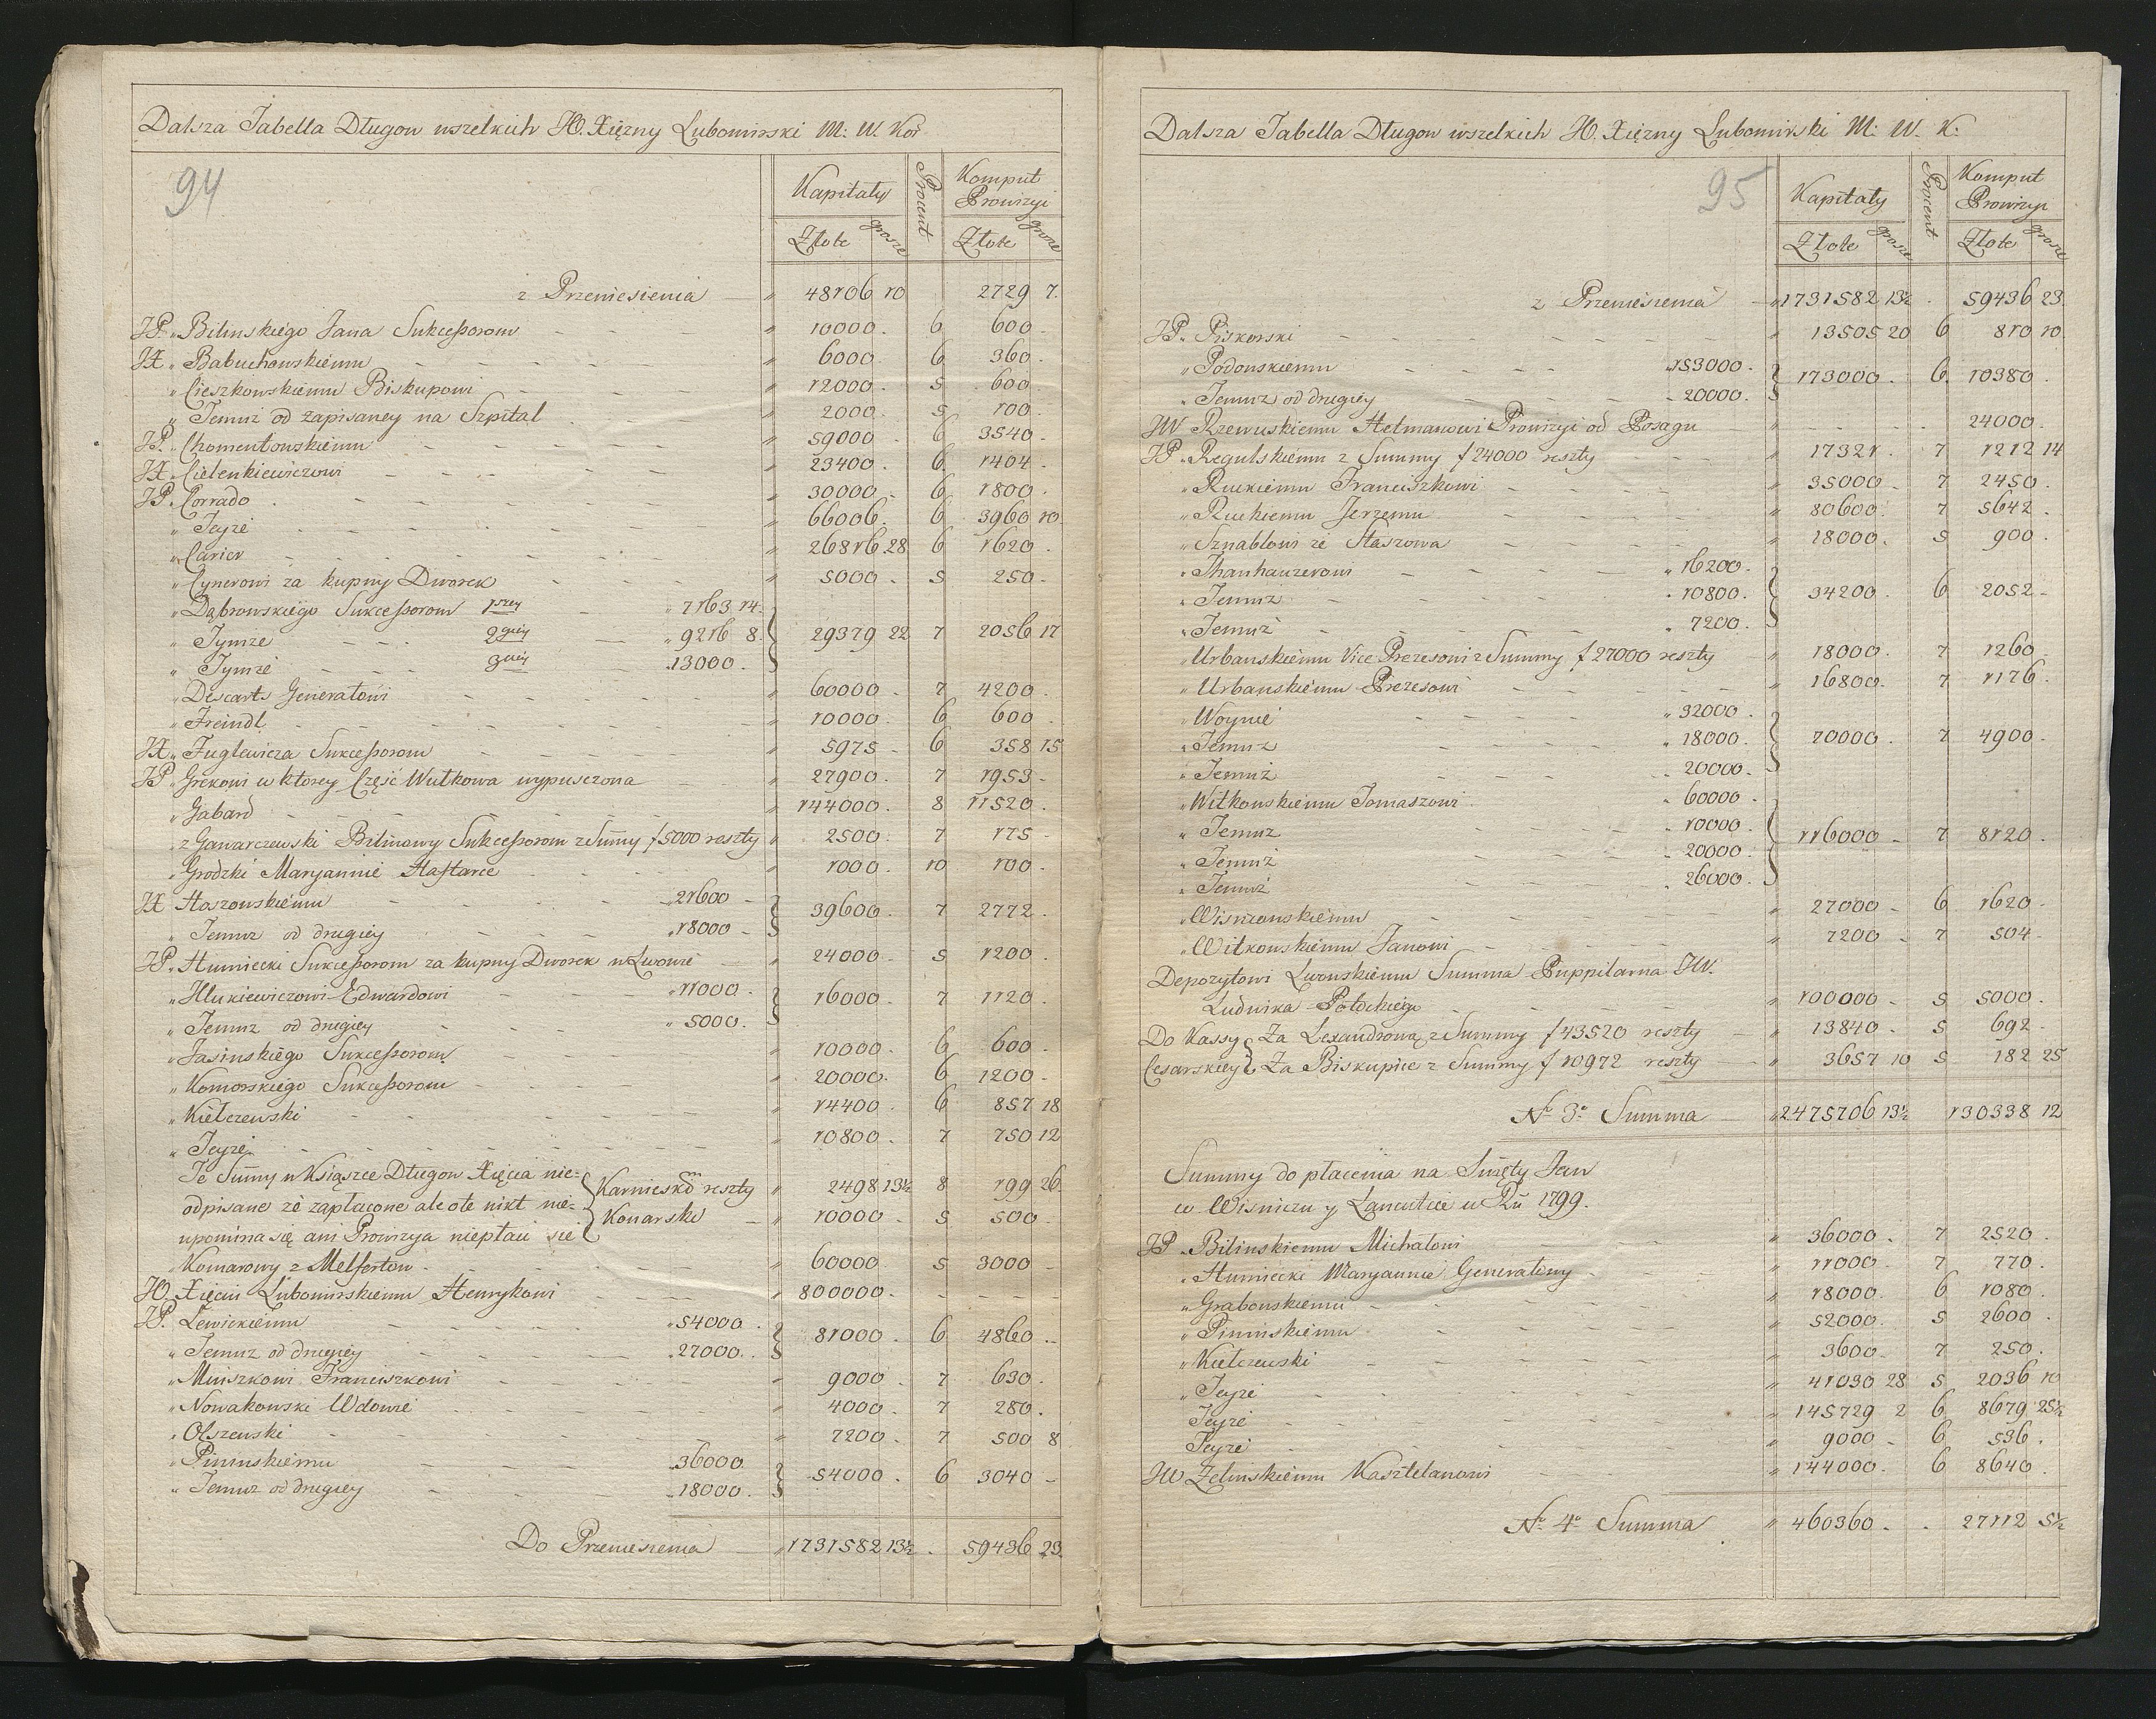 Dalsza Tabella Długow wszelkich JO. Xiężny Lubomirski M: W. Kor
94
Kapitały Procent Komput Prowizyi
Złote grosze Złote grosze
z Przeniesienia — " 48106 10 2729 7.
JP. " Bilinskiego Jana Sukcessorom - - " 10000. 6 600.
JX. " Babuchowskiemu - - - " 6000. 6 360.
" Cieszkowskiemu Biskupowi - - " 12000. 5 600.
" Temuż od zapisaney na Szpital - " 2000. 5 100.
JP. " Chomentowskiemu - - - " 59000 6 3540.
JX. Cielenkiewiczowi - - - " 23400. 6 1404.
JP. Corrado - - - " 30000. 6 1800.
" Teyże - - - " 66006. 6 3960 10.
" Carier - - - " 26816. 28 6 1620.
" Cynerowi za kupny Dworek - - " 5000. 5 250.
" Dąbrowskiego Sukcessorom 1szey - " 7163 14.
" Tymże - - 2giey — " 9216 8. } 29379 22 7 2056 17
" Tymże - - 3ciey — " 13000.
" Descarts Generałowi - - - " 60000. 7 4200.
" Freindl - - - " 10000. 6 600.
JX. " Fuglewicza Sukcessorom - - " 5975 - 6 358 15
JP Grekowi w ktorey Część Wutkowa wypuszczona - " 27900. 7 1953 -
" Gabard - - - " 144000. 8 11520.
" z Gawarczewski Bilinowy Sukcessorom z Summy f 5000 reszty " 2500. 7 175 -
" Grodzki Maryannie Haftarce - - " 1000. 10 100.
JX Hoszowskiemu - - - " 21600 -
" Temuz od drugiey - - " 18000 - } 39600. 7 2772.
JP. Humiecki Sukcessorom za kupny Dworek w Lwowie — " 24000 - 5 1200.
" Hlukiewiczowi Edwardowi - - " 11000.
" Temuz od drugiey - - " 5000. } 16000. 7 1120.
" Jasinskiego Sukcessorom - - " 10000. 6 600.
" Komorskiego Sukcessorom - - " 20000. 6 1200 -
" Kiełczewski - - - " 14400. 6 857 18
" Teyże - - - " 10800. 7 750 12
Te Summy w Książce Długow Xięcia nie-
odpisane że zapłacone ale ote nikt nie- } Karnieskom reszty " 2498 13½ 8 199 26.
upomina się ani Prowizya niepłaci się } Konarski — " 10000. 5 500.
" Komarowy z Melfertow - - " 60000 5 3000 -
JO. Xięciu Lubomirskiemu Henrykowi - - " 800000. - - - -
JP. Lewickiemu - - - " 54000.
" Temuz od drugiey - - " 27000. } 81000. 6 4860.
" Miniszkowi Franciszkowi - - " 9000. 7 630.
" Nowakowski Wdowie - - " 4000. 7 280.
" Olszewski - - - " 7200. 7 500 8
" Pininskiemu - - - " 36000
" Temuz od drugiey - - " 18000. } 54000. 6 3040 -
Do Przeniesienia — " 1731582 13½ . 59436 23.
Dalsza Tabella Długow wszelkich JO. Xiężny Lubomirski M: W. K:
95
Kapitały Procent Komput Prowizyi
Złote grosze Złote grosze
z Przeniesienia — " 1731582 13½ . 59436 23.
JP. Piskorski - - - " 13505 20 6 810 10.
" Podowskiemu - - - " 153000.
" Temuz od drugiey - - " 20000. } 173000. 6. 10380.
JW Rzewuskiemu Hetmanowi Prowizyi od Posagu " - - - 24000.
JP. Regulskiemu z Summy f 24000 reszty - - " 17321. 7 1212 14
" Ruckiemu Franciszkowi - - " 35000 - 7 2450.
" Ruckiemu Jerzemu - - - " 80600. 7 5642.
" Sznablowi ze Staszowa - - " 18000. 5 900.
" Thanhauzerowi - - " 16200.
" Temuz - - - " 10800. } 34200. 6 2052 -
" Temuz - - - " 7200.
" Urbanskiemu Vice Prezesowi z Summy f 27000 reszty — " 18000. 7 1260
" Urbanskiemu Prezesowi - - " 16800. 7 1176.
" Woynie - - - " 32000.
" Temuz - - - " 18000. } 70000. 7 4900 -
" Temuz - - - " 20000.
" Witkowskiemu Tomaszowi - - " 60000
" Temuz - - - " 10000. } 116000 - 7 8120.
" Temuz - - - " 20000.
" Temuz - - - " 26000.
" Wiszniowskiemu - - - " 27000 - 6 1620.
" Witkowskiemu Janowi - - " 7200 - 7 504 -
Depozytowi Lwowskiemu Summa Puppilarna JW.
Ludwika Potockiego - - " 100000 - 5 5000.
Do Kassy { Za Lexandrową z Summy f 43520 reszty — " 13840. 5 692.
Cesarskiey } Za Biskupice z Summy f 10972 reszty — " 3657 10 5 182 25
No 3o Summa — " 2475706 13½ 130338 12
Summy do płacenia na Swięty Jan
w Wisniczu y Łancutcie w Rũ 1799.
JP. Bilinskiemu Michałowi - - " 36000. 7 2520.
" Humiecki Maryannie Generałowy - " 11000. 7 770.
" Grabowskiemu - - - " 18000. 6 1080.
" Pininskiemu - - - " 52000. 5 2600.
" Kiełczewski - - - " 3600. 7 250.
" Teyże - - - " 41030 28 5 2036 10
Teyże - - - " 145729 2 6 8679 25½
Teyże - - - " 9000 - 6 536.
JW Zelinskiemu Kasztelanowi - - " 144000. 6 8640.
No 4o Summa " 460360. . 27112 5½